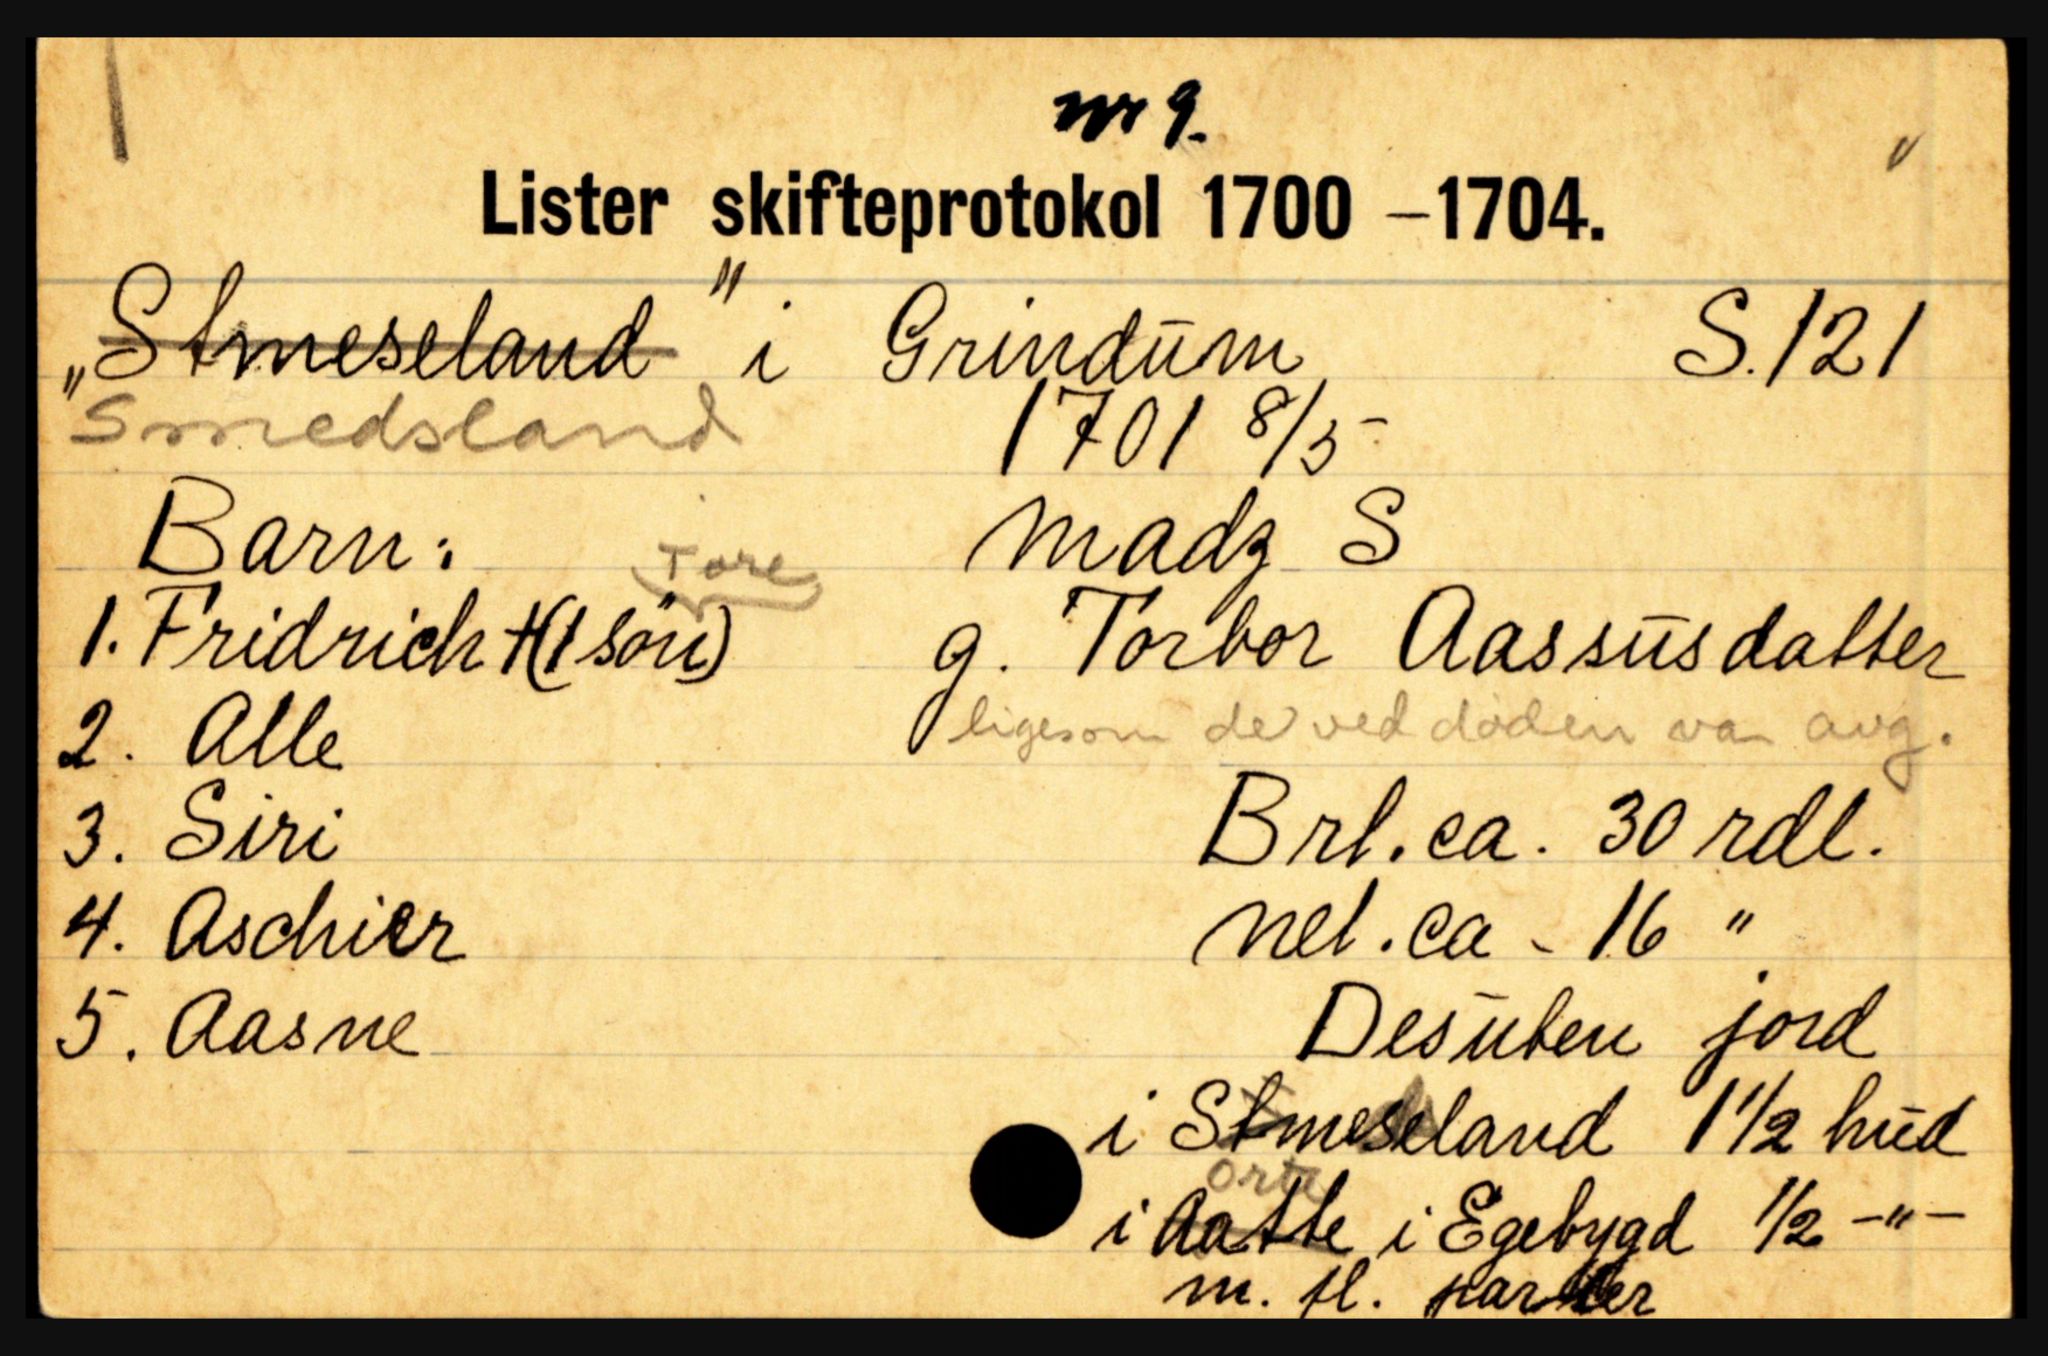 nr 9.
Lister skifteprotokol 1700 -1704.
„Stmeseland" i Grindum S. 121
Smedsland 1701 8/5
Barn: Madz S
Tore
1. Fridrich †(1 sön) g. Torbor Aassusdatter
ligesom de ved döden var
2. Alle
3. Siri Brt. ca. 30 rdl.
4. Aschier net. ca - 16 "
5. Aasne Desuten jord
i Stmeseland 1 1/2 hud
Orte
i Aatte i Egebygd 1/2 -"-
m. fl. parter